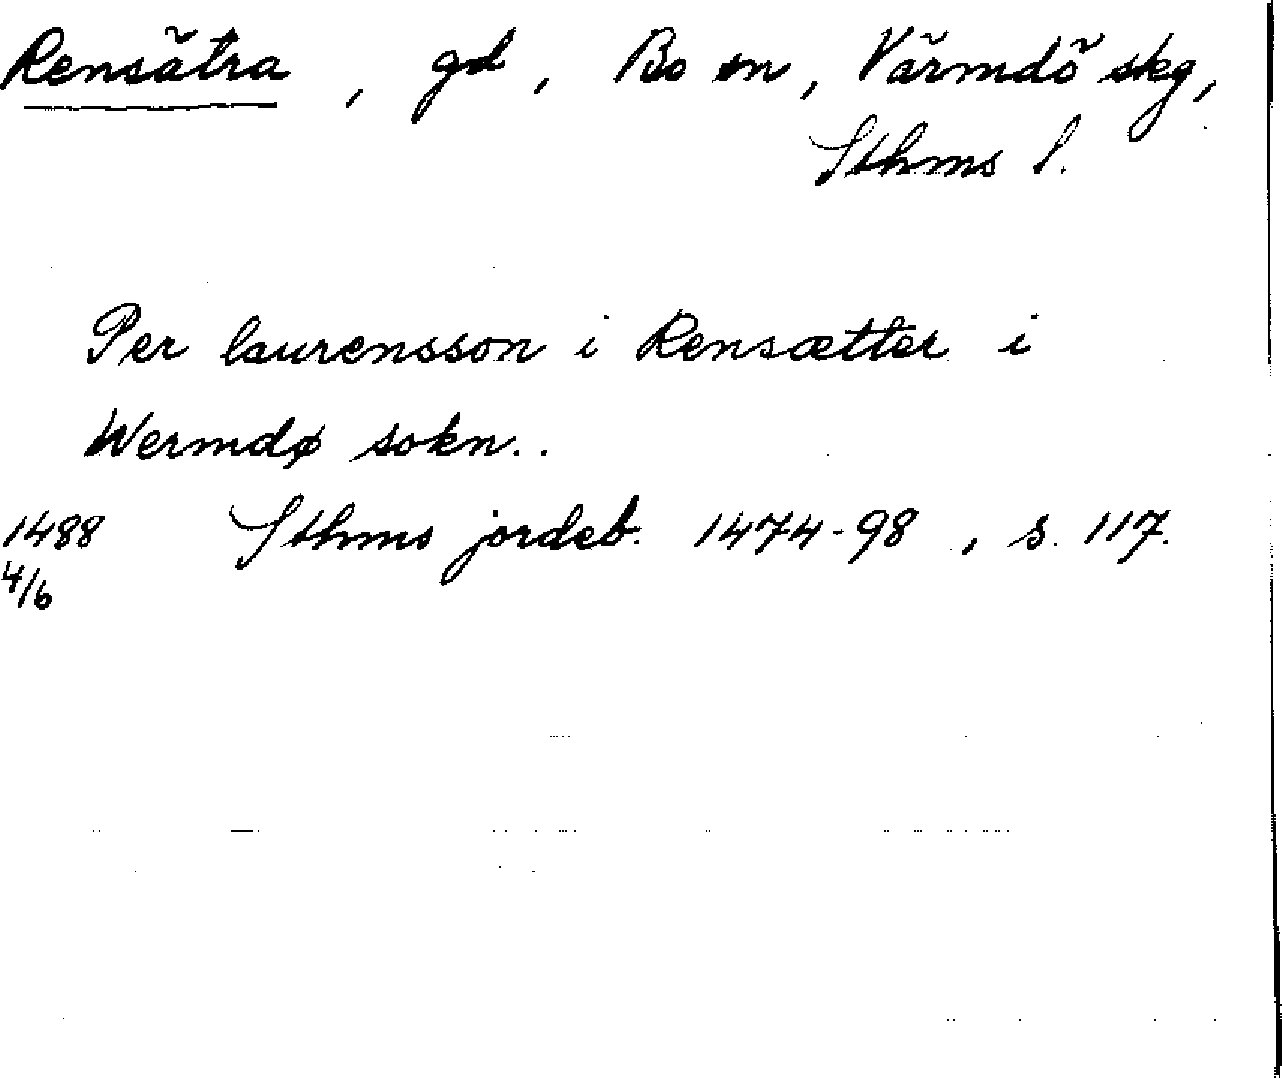 Rensätra, gd, Bo sn, Värmdö skg,
Sthms l.
Per laurensson i Rensætter i
Wermdø sokn..
1488 Sthms jordeb. 1474-98, s. 117.
4/6